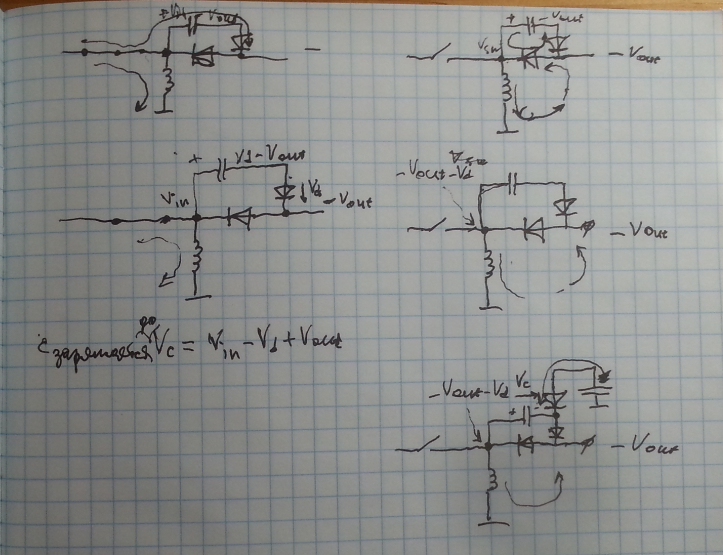 + Vout
+ - Vout
Vin
- Vout
+ Vd - Vout
Vd
Vin
- Vout
- Vout - Vd
- Vout
C заряжается до Vc = Vin - Vd + Vout
- Vout - Vd Vc
+
- Vout